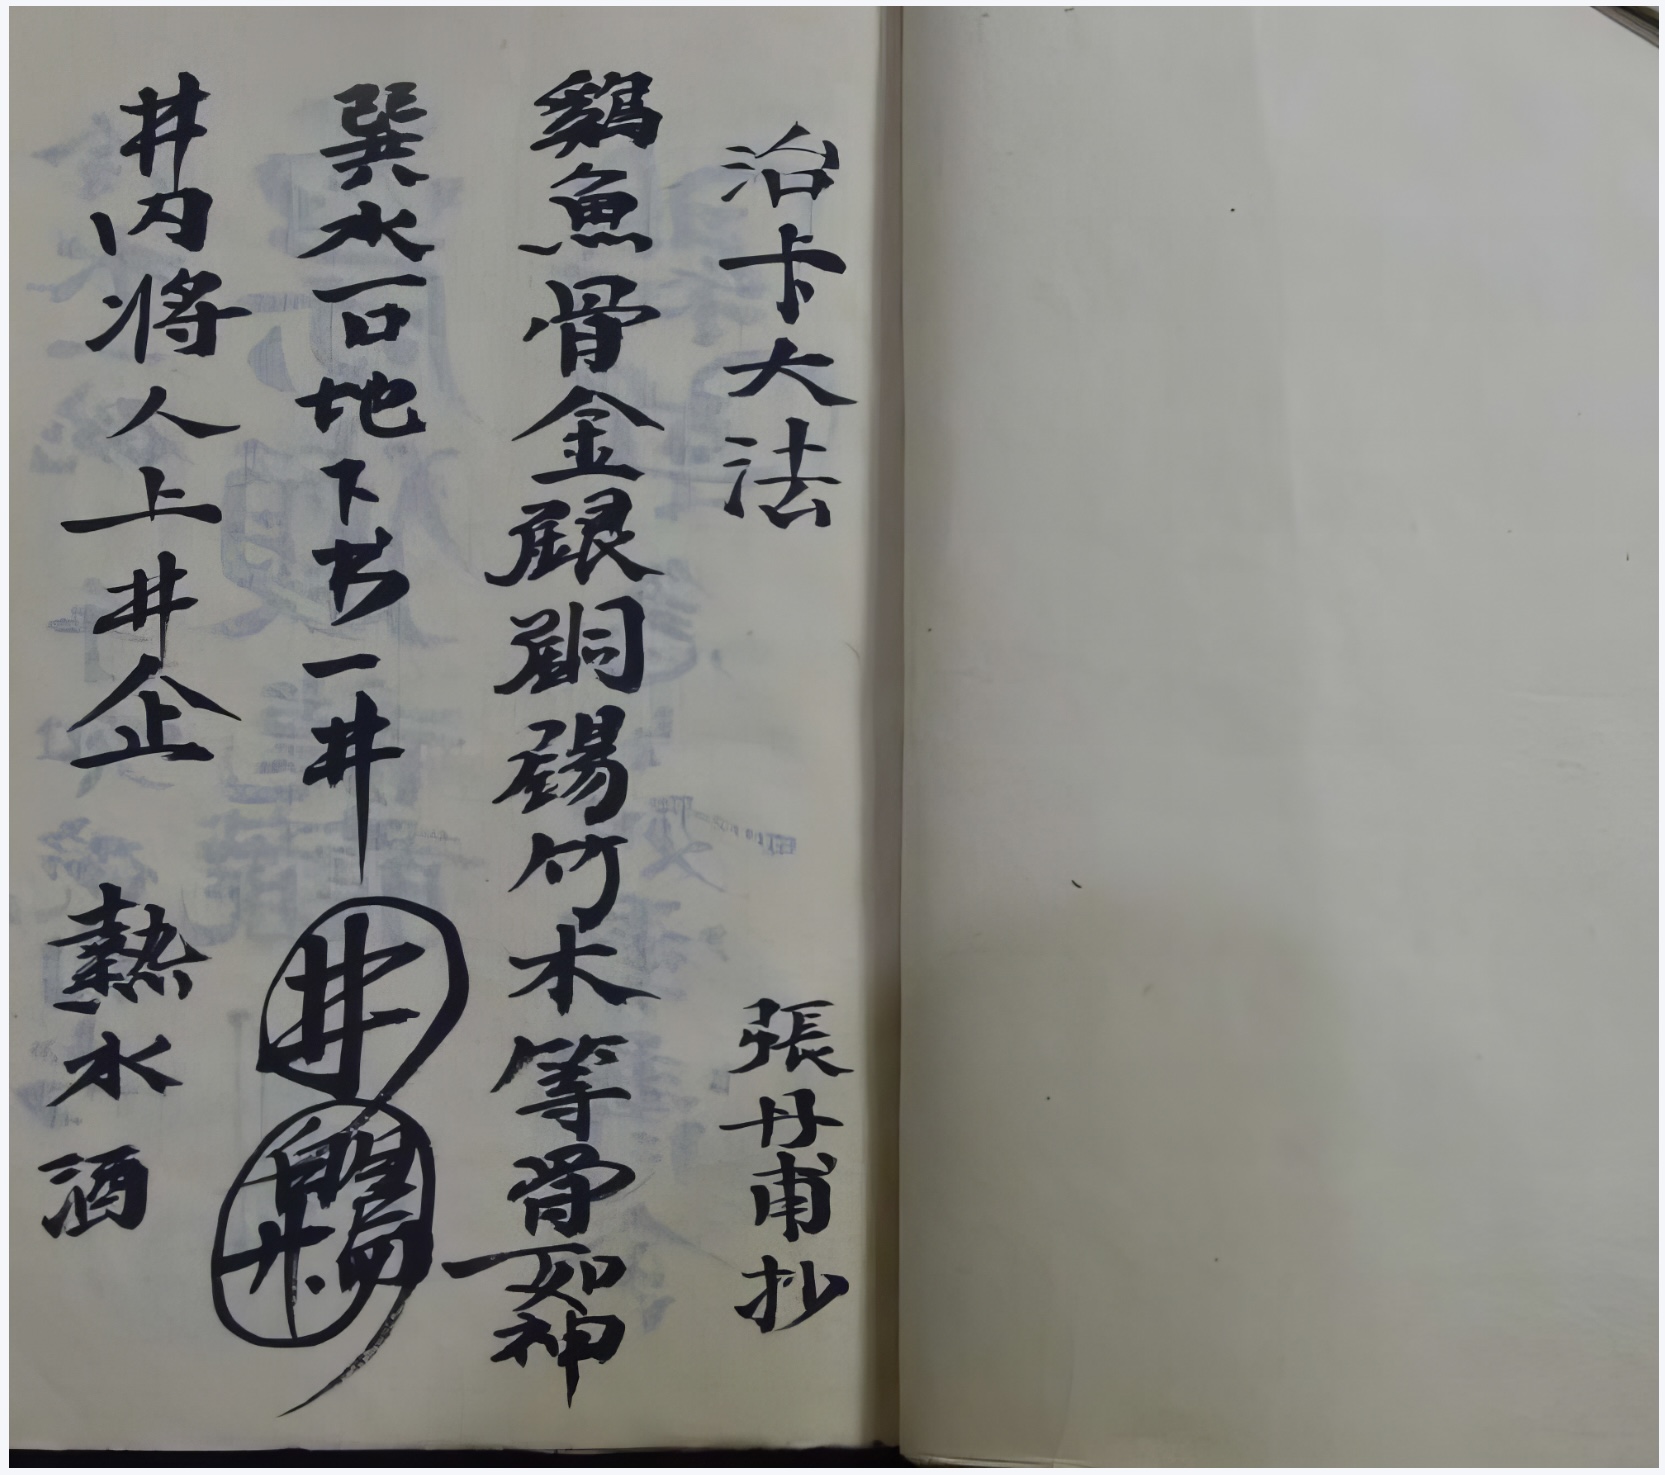 治卡大法 張丹甫抄
鷄魚骨金銀銅錫竹木等骨如神
巽水一口地下书一井 井
井內將人上井企 熱水酒